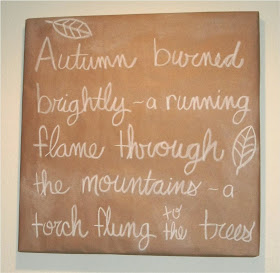 Autumn burned
brightly~a running
flame through
the mountains~a
torch flung to the trees